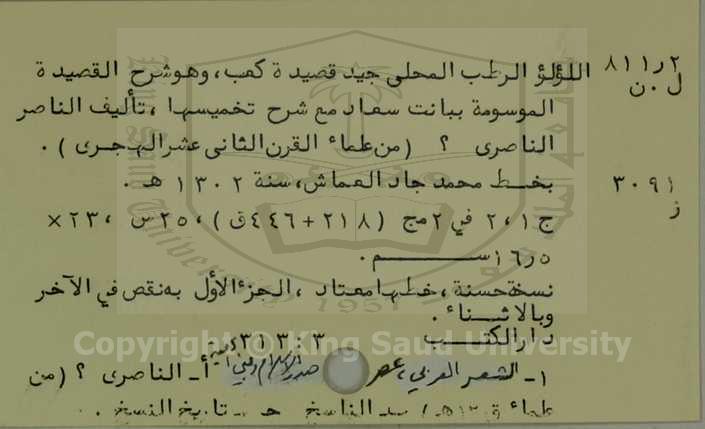 ٨١١٫٢ اللؤلؤ الرطب المحلى جيد قصيدة كعب، وهو شرح القصيدة
ل٠ن الموسومة ببانت سعاد مع شرح تخميسها، تأليف الناصر
الناصرى ؟ (من علماء القرن الثانى عشر الهجرى) .
٣٠٩١ بخط محمد جاد العماش، سنة ١٣٠٢ هـ .
ز ج١،٢ في ٢مج (٢١٨+٤٤٦ق)، ٢٥س، ٢٣×
١٦٫٥سم.
نسخة حسنة، خطها معتاد، الجزء الأول به نقص في الآخر
وبالاثناء.
دار الكتب ٣ : ٣١٣
١- الشعر العربي، عصر صدر الإسلام أ- الناصرى ؟ (من
علماء ق١٢هـ) ب- الناسخ جـ- تاريخ النسخ .
Copyright © King Saud University
1957